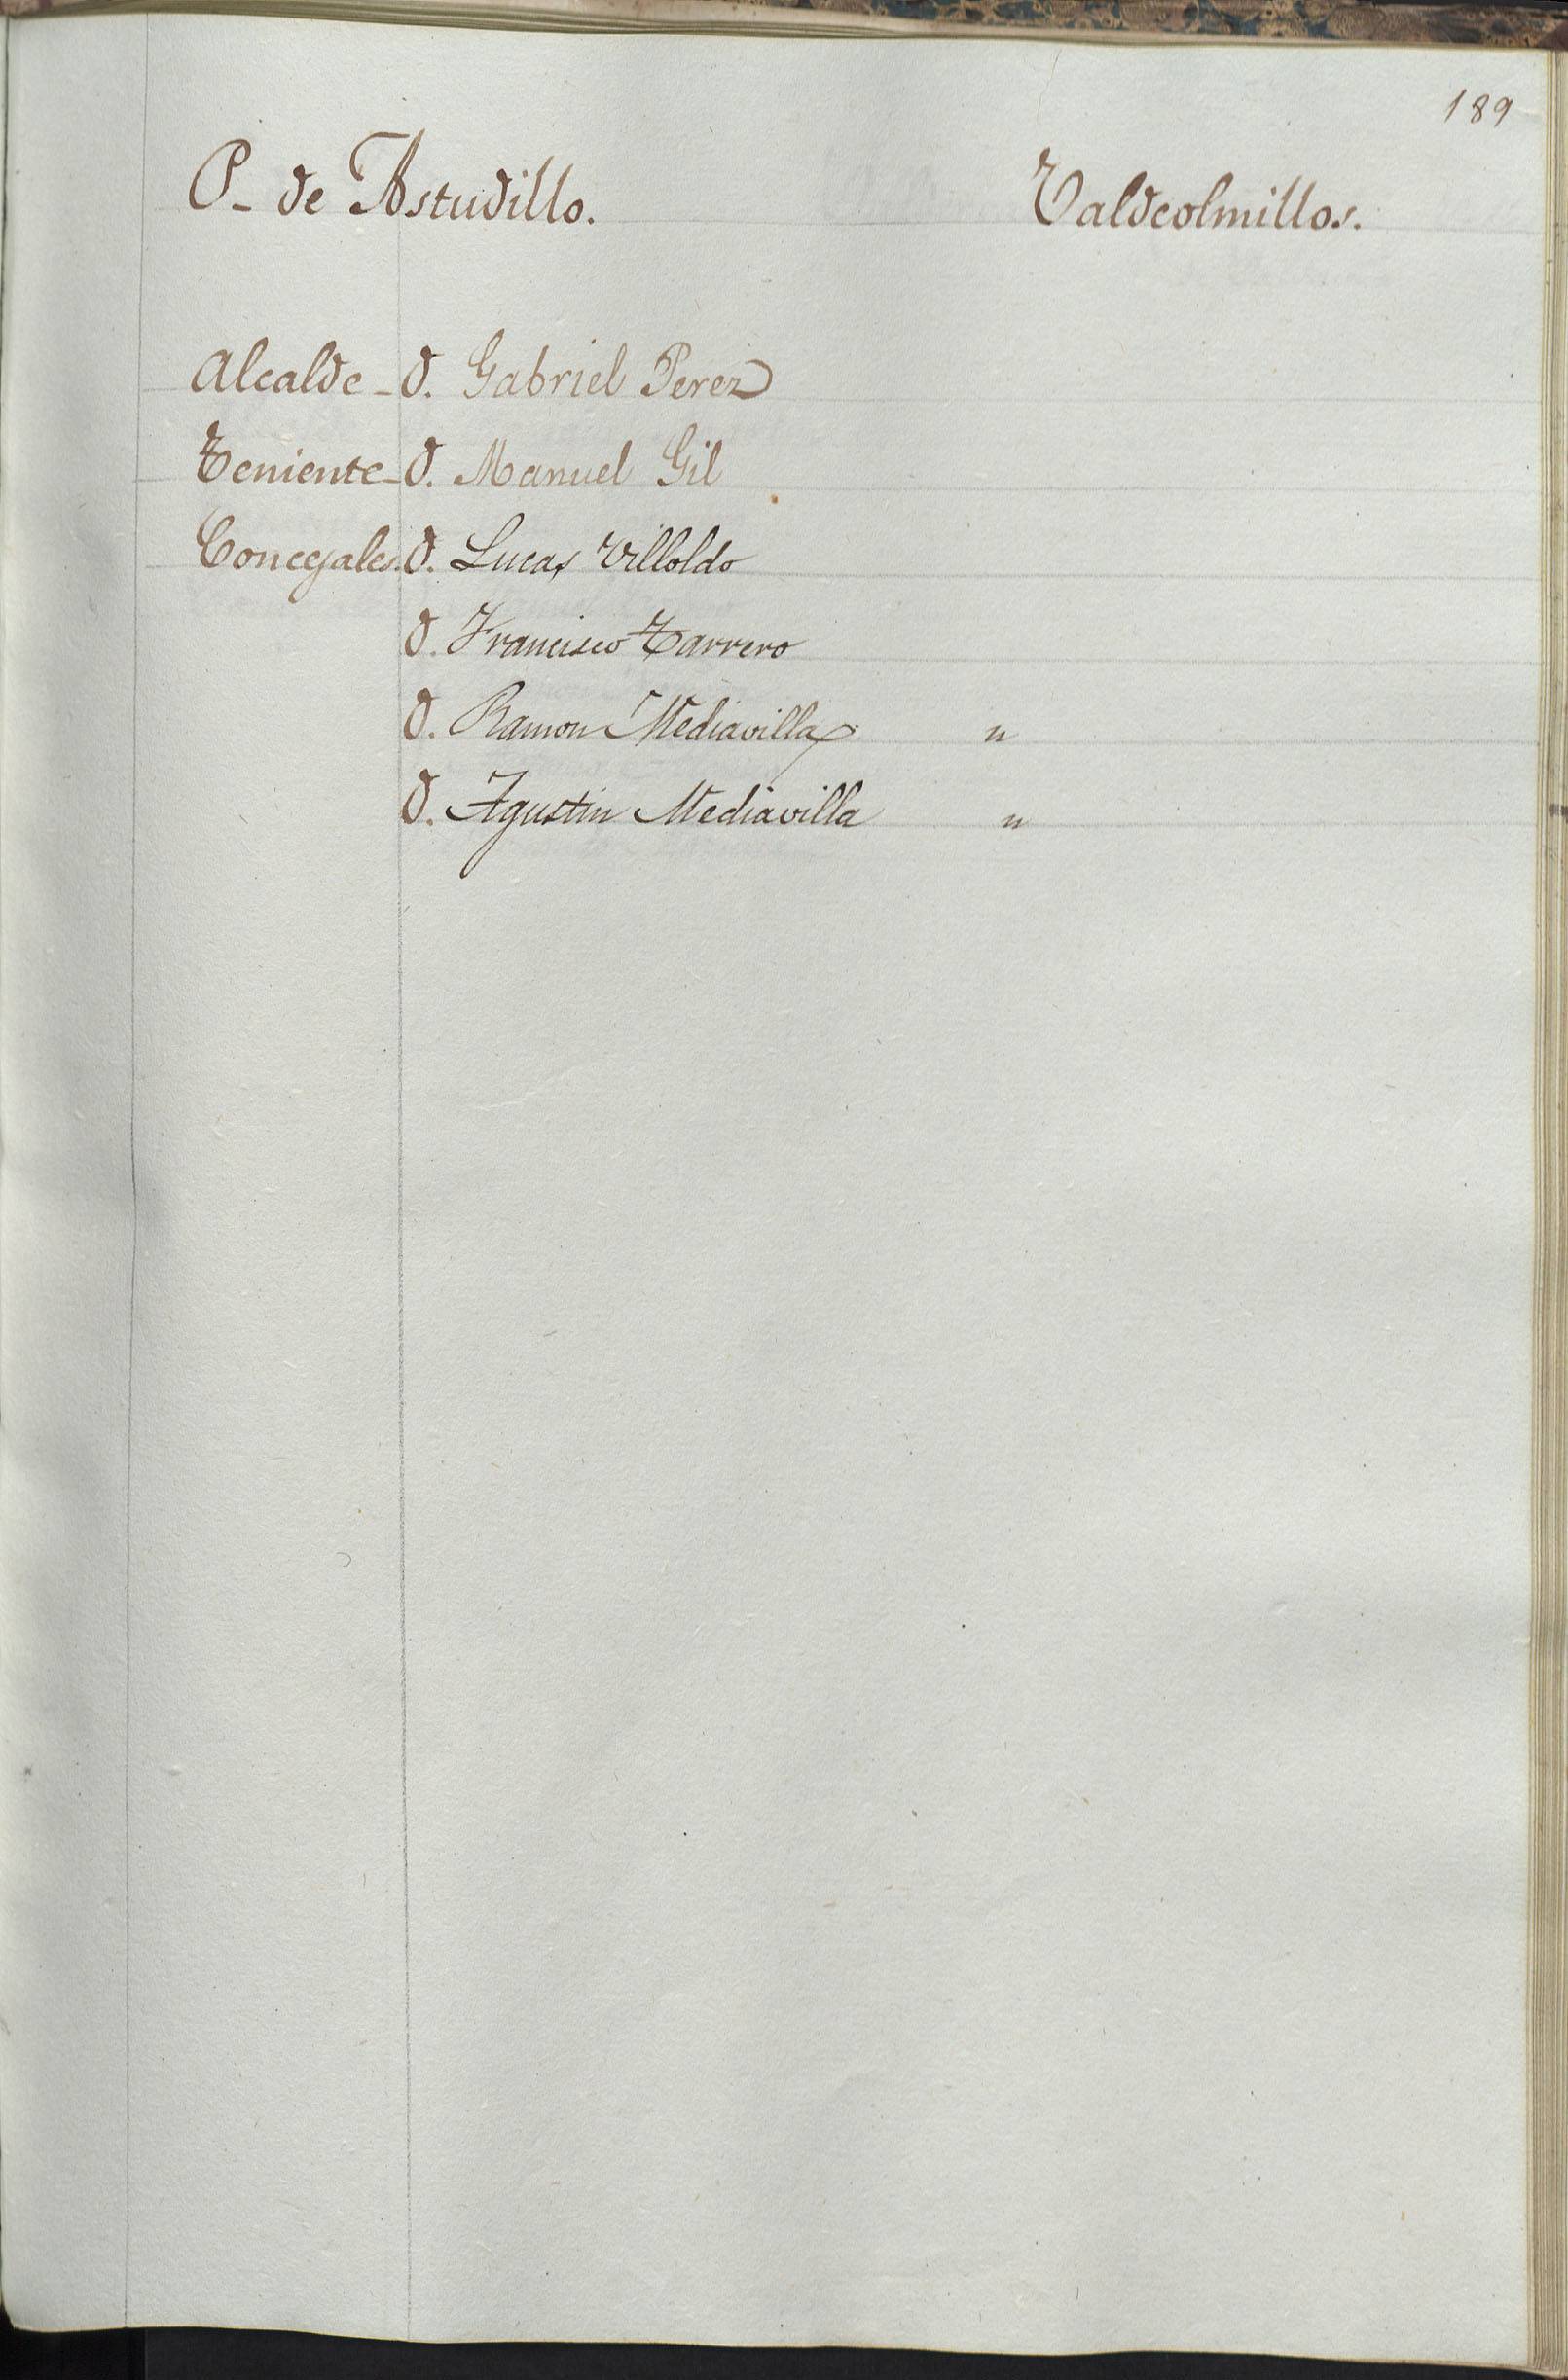 189
P. de Astudillo. Valdeolmillos.
Alcalde - D. Gabriel Perez
Teniente - D. Manuel Gil
Concejales. D. Lucas Villoldo
D. Francisco Tarrero
D. Ramon Mediavilla "
D. Agustin Mediavilla "